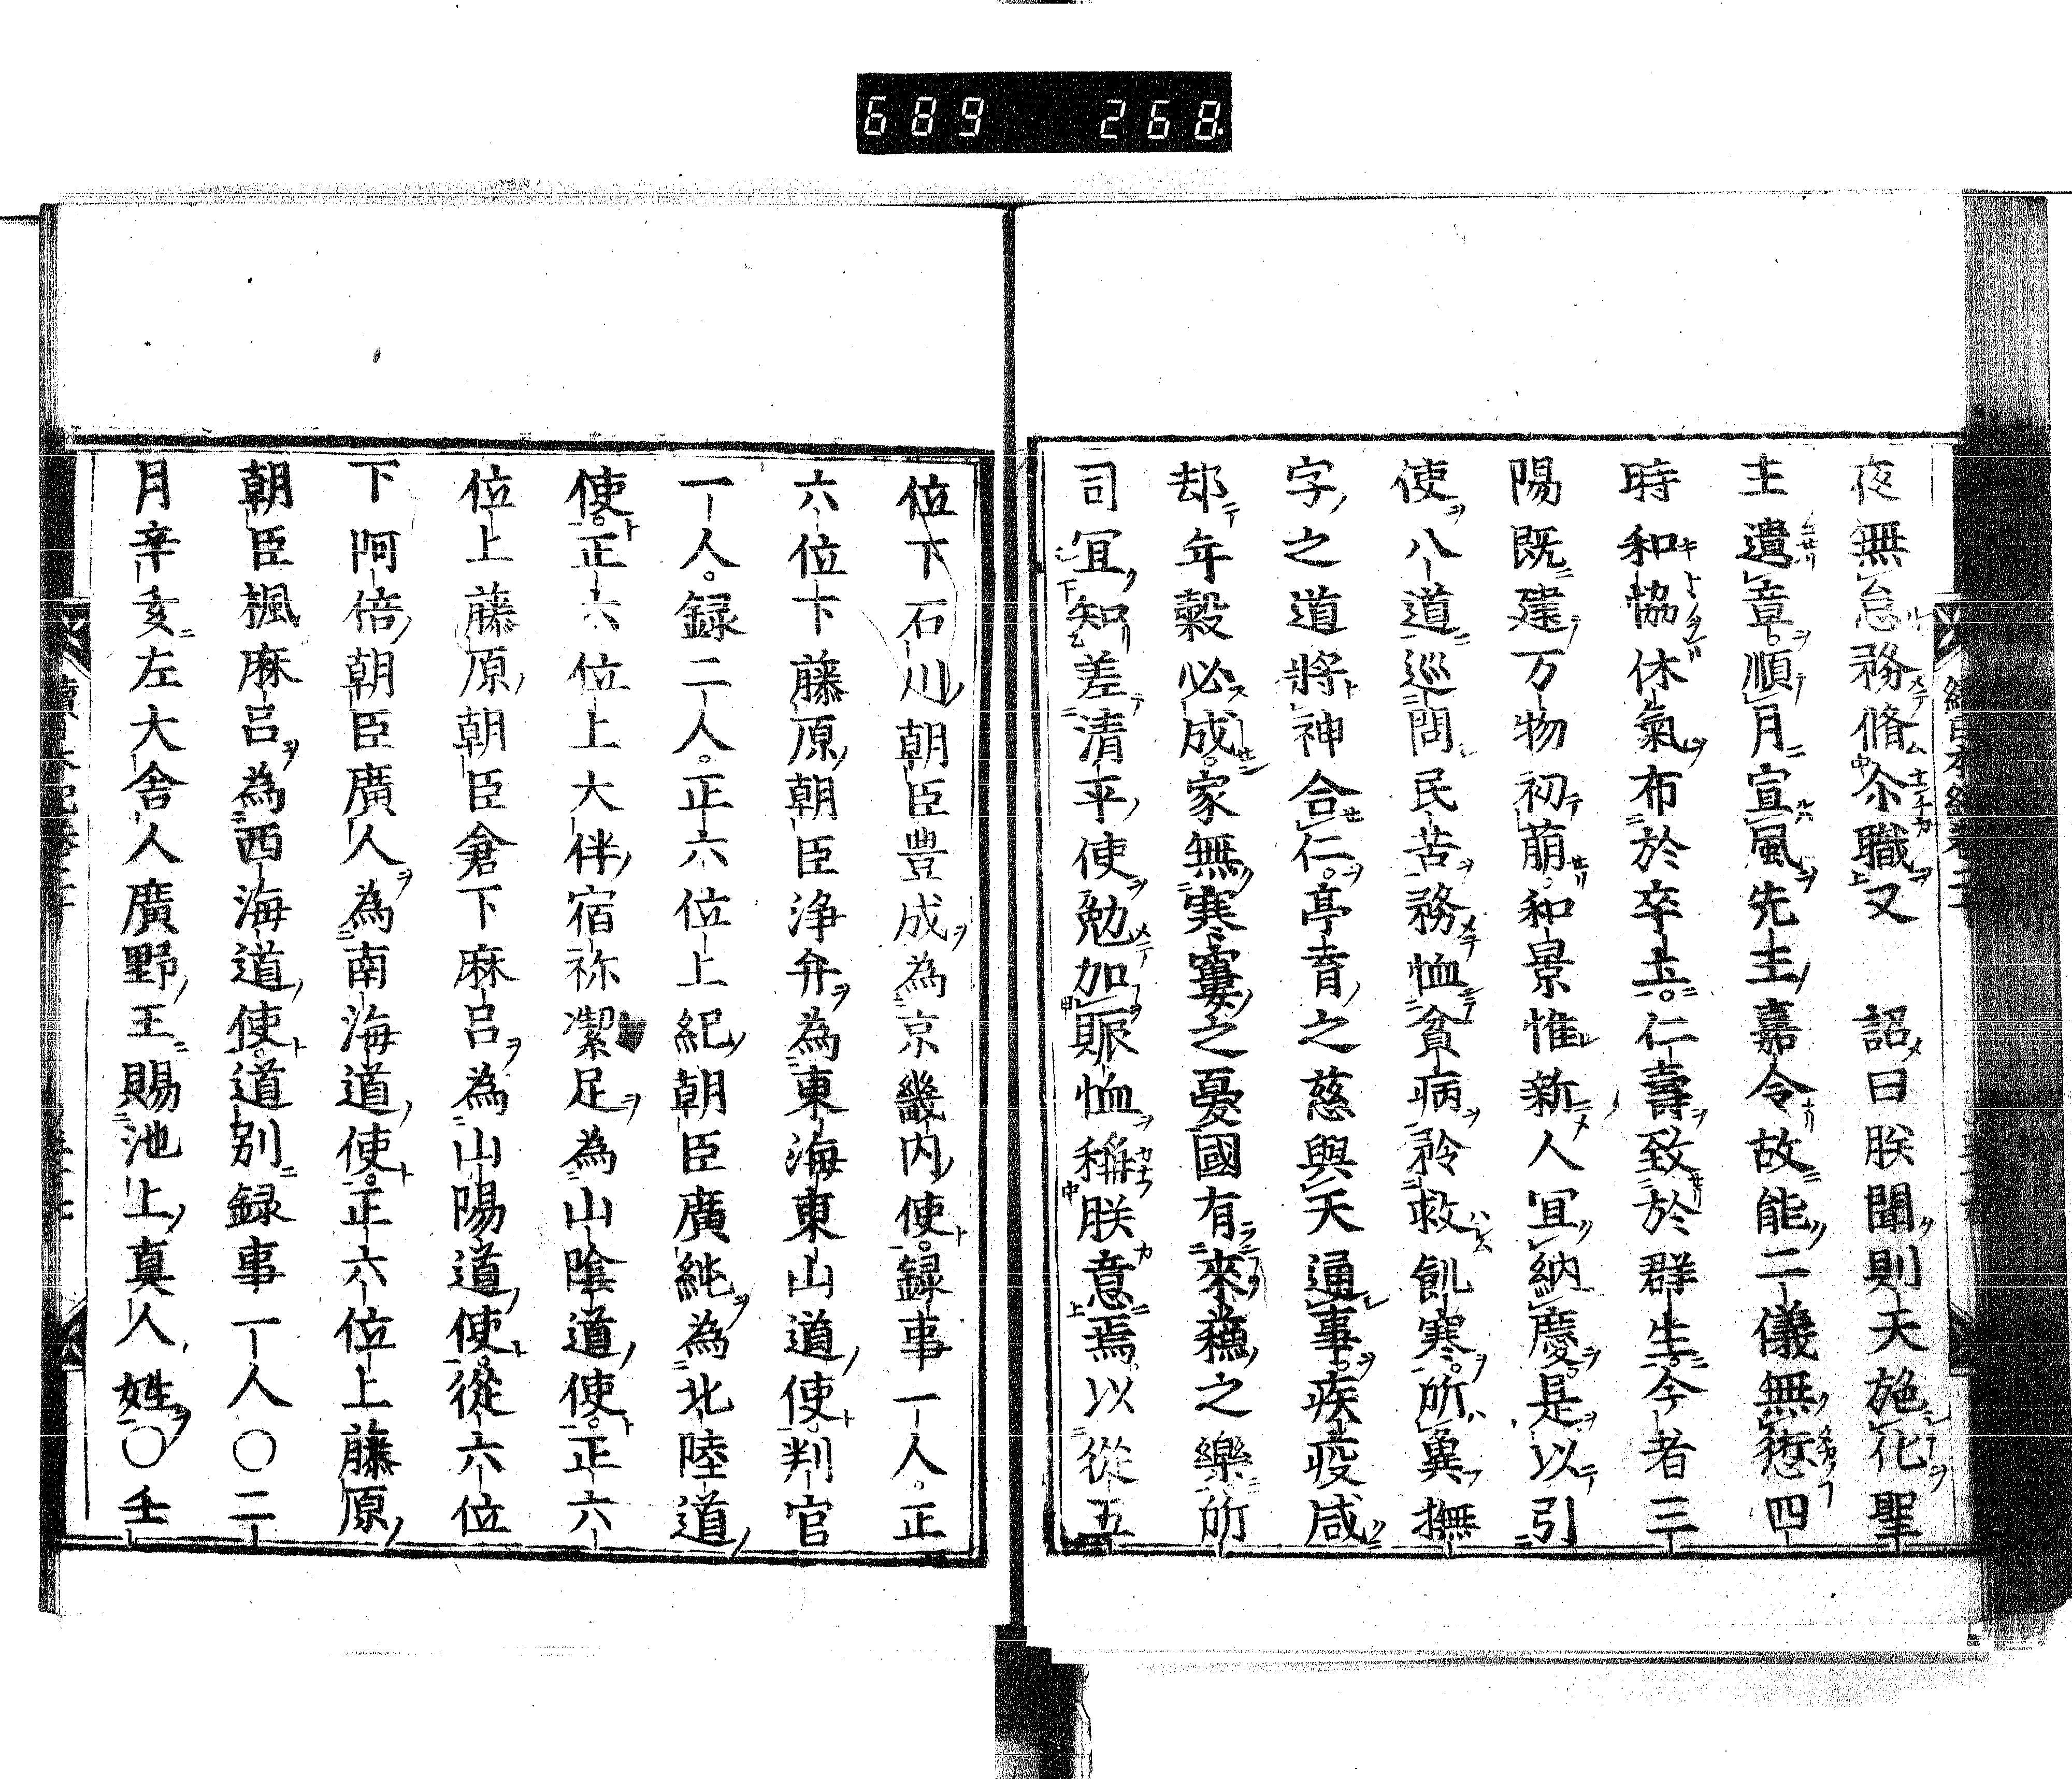 689 268
夜無怠務脩尒職又 詔曰朕聞則天施化聖
主遺章順月宣風先王嘉令故能二儀無愆四
時和協休氣布於卒土仁壽致於群生今者三
陽既建万物初萠和景惟新人宜納慶是以引
使八道巡問民苦務恤貧病矜救飢寒所冀撫
字之道將神合仁亭育之慈與天通事疾疫咸
却年穀必成家無寒窶之憂國有來穌之樂所
司宜知差清平使勉加賑恤稱朕意焉以從五
位下石川朝臣豐成為京畿内使録事一人正
六位下藤原朝臣浄弁為東海東山道使判官
一人録二人正六位上紀朝臣廣純為北陸道
使正六位上大伴宿祢潔足為山陰道使正六
位上藤原朝臣倉下麻呂為山陽道使從六位
下阿倍朝臣廣人為南海道使正六位上藤原
朝臣楓麻呂為西海道使道別録事一人〇二
月辛亥左大舎人廣野王賜池上真人姓〇壬